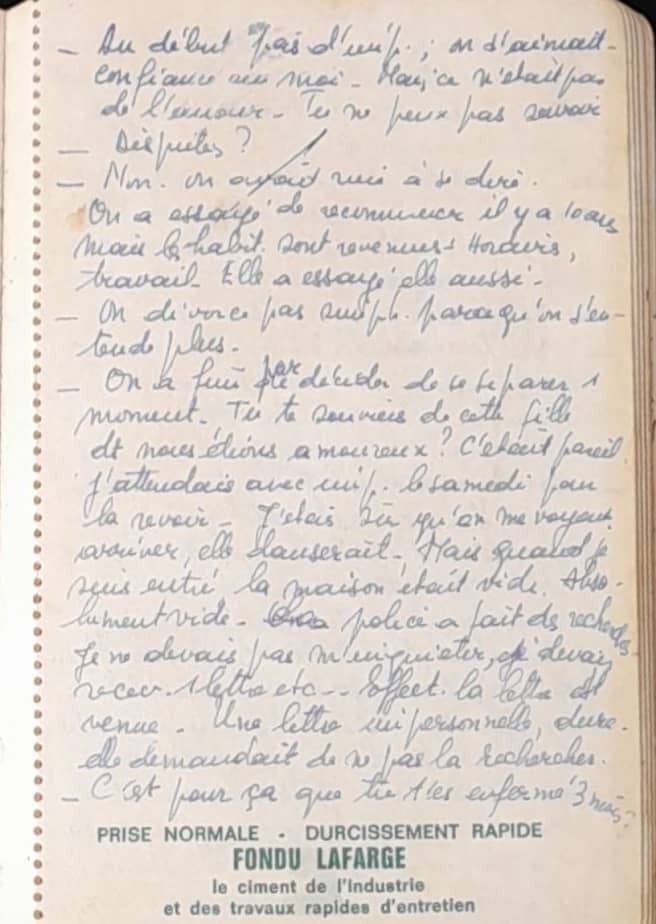 — Au début pas d'imp. ; on s'aimait -
confiance en moi - Mais ce n'était pas
de l'amour - Tu ne peux pas savoir
— Disputes ?
— Non. on avait rien à se dire.
On a essayé de recommencer il y a 10 ans
mais les habit. sont revenues + Horaires,
travail - Elle a essayé elle aussi -
— On divorce pas simpl. parce qu'on s'en-
tende plus -
— On a fini par décider de se séparer 1
moment - Tu te souviens de cette fille
dt nous étions amoureux ? C'était pareil.
J'attendais avec imp. le samedi pour
la revoir - J'étais sûr qu'en me voyant
arriver, elle danserait - Mais quand je
suis entré la maison était vide. Abso-
lument vide - police a fait des recherches
Je ne devais pas m'inquiéter, je devais
recev. 1 lettre etc -- Effect. la lettre est
venue - Une lettre impersonnelle, dure.
elle demandait de ne pas la rechercher.
— C'est pour ça que tu t'es enfermé 3 mois ?
PRISE NORMALE - DURCISSEMENT RAPIDE
FONDU LAFARGE
le ciment de l'industrie
et des travaux rapides d'entretien